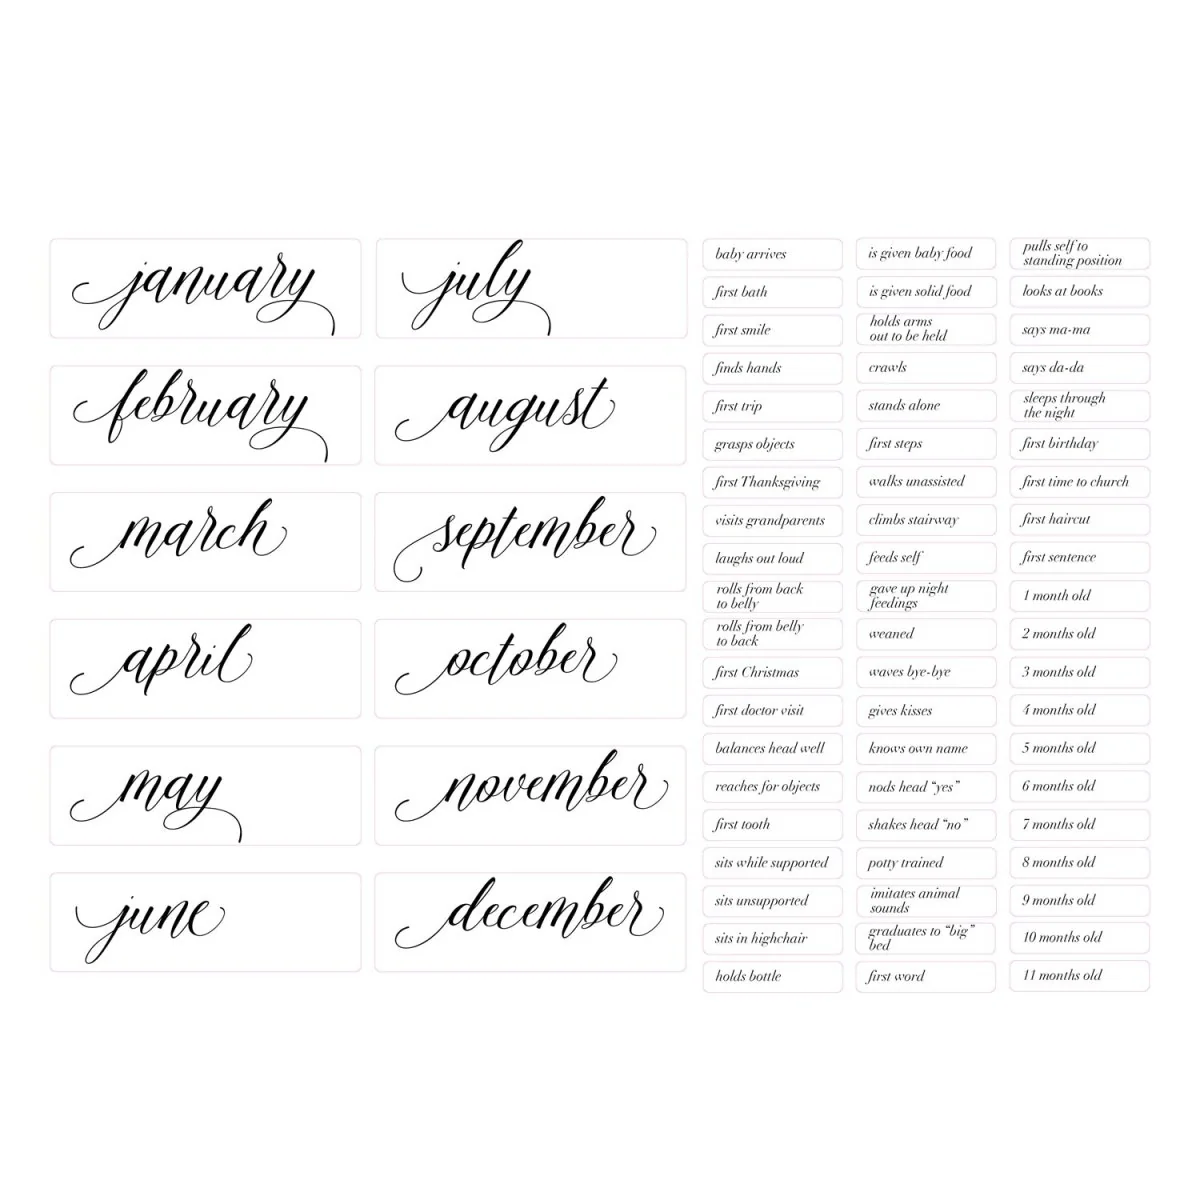 january
february
march
april
may
june
july
august
september
october
november
december
baby arrives
first bath
first smile
finds hands
first trip
grasps objects
first Thanksgiving
visits grandparents
laughs out loud
rolls from back
to belly
rolls from belly
to back
first Christmas
first doctor visit
balances head well
reaches for objects
first tooth
sits while supported
sits unsupported
sits in highchair
holds bottle
is given baby food
is given solid food
holds arms
out to be held
crawls
stands alone
first steps
walks unassisted
climbs stairway
feeds self
gave up night
feedings
weaned
waves bye-bye
gives kisses
knows own name
nods head “yes”
shakes head “no”
potty trained
imitates animal
sounds
graduates to “big”
bed
first word
pulls self to
standing position
looks at books
says ma-ma
says da-da
sleeps through
the night
first birthday
first time to church
first haircut
first sentence
1 month old
2 months old
3 months old
4 months old
5 months old
6 months old
7 months old
8 months old
9 months old
10 months old
11 months old